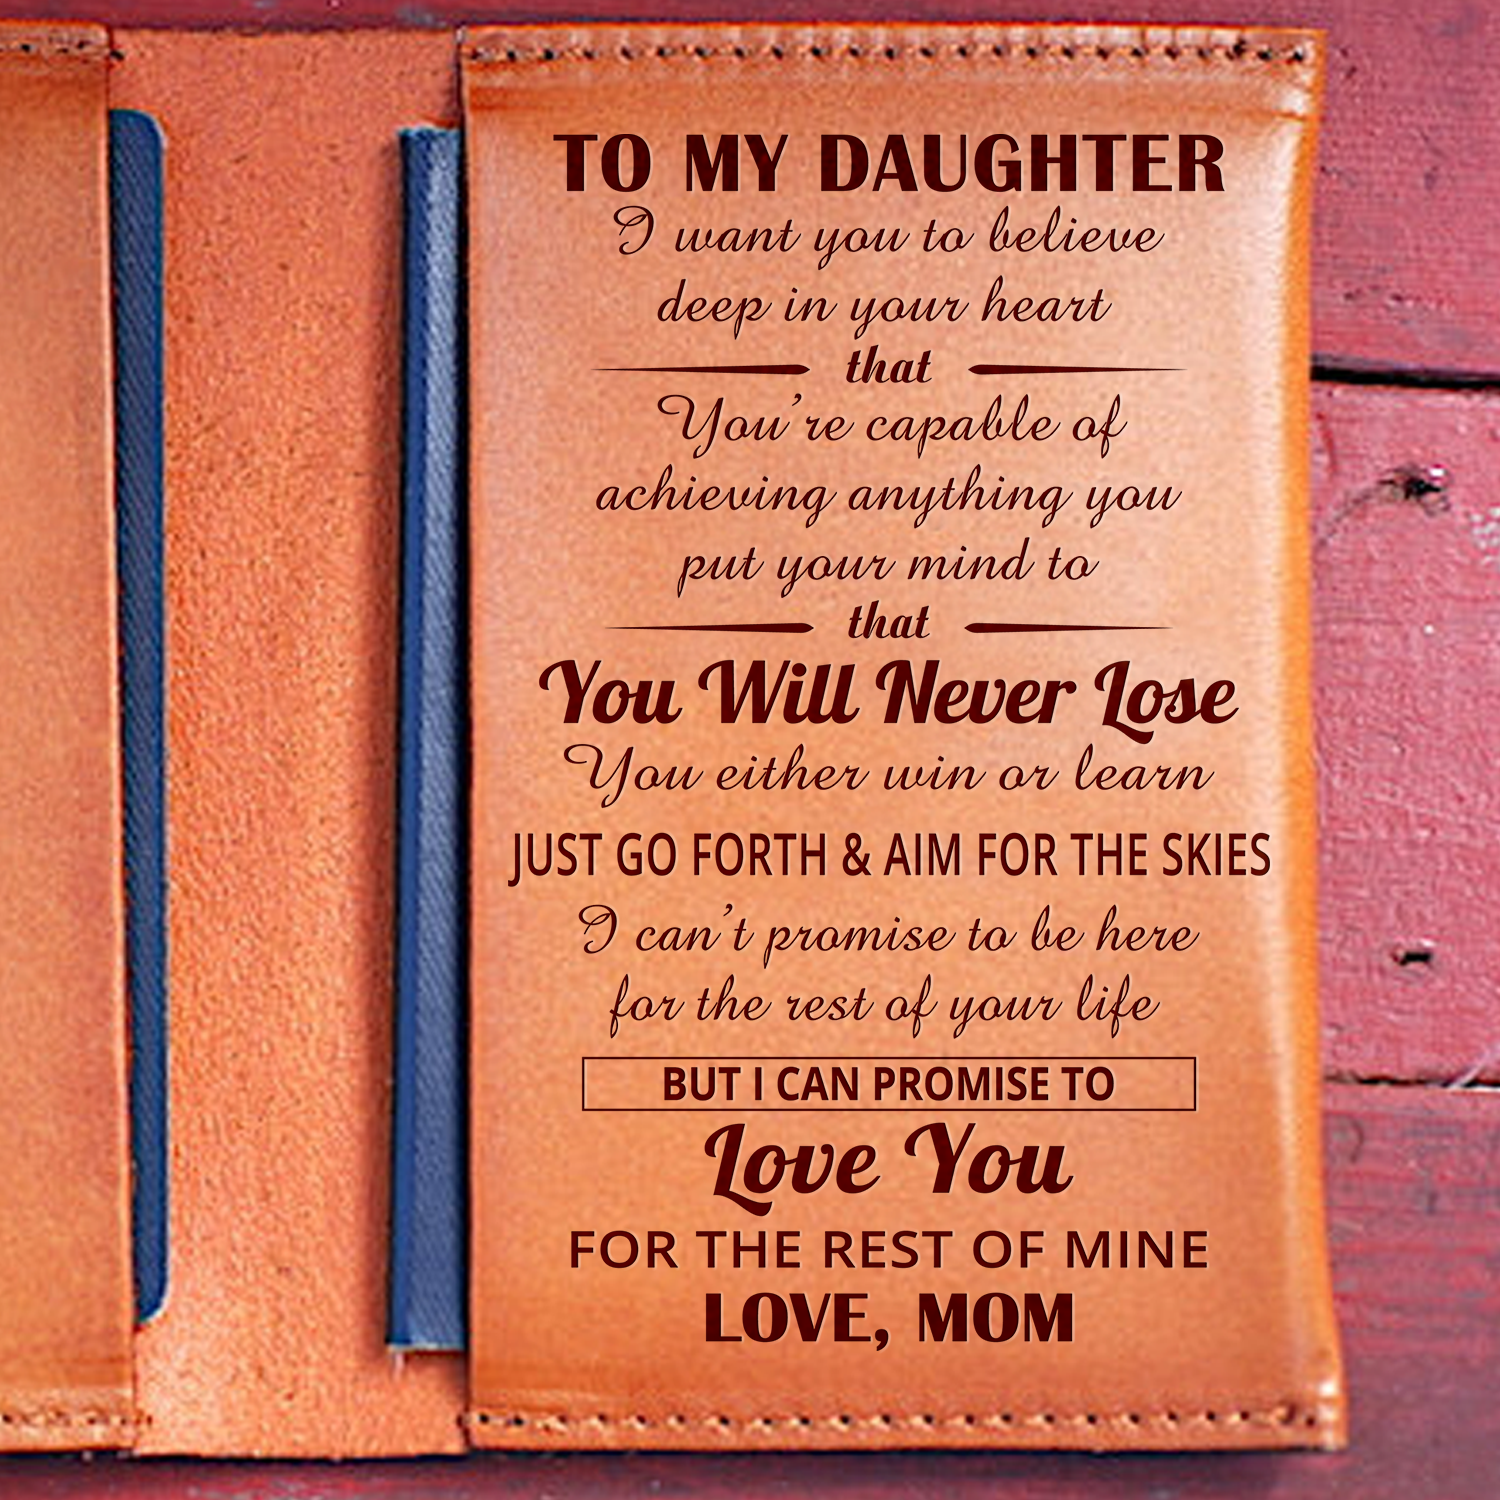 TO MY DAUGHTER
I want you to believe
deep in your heart
that
You're capable of
achieving anything you
put your mind to
that
You Will Never Lose
You either win or learn
JUST GO FORTH & AIM FOR THE SKIES
I can't promise to be here
for the rest of your life
BUT I CAN PROMISE TO
Love You
FOR THE REST OF MINE
LOVE, MOM